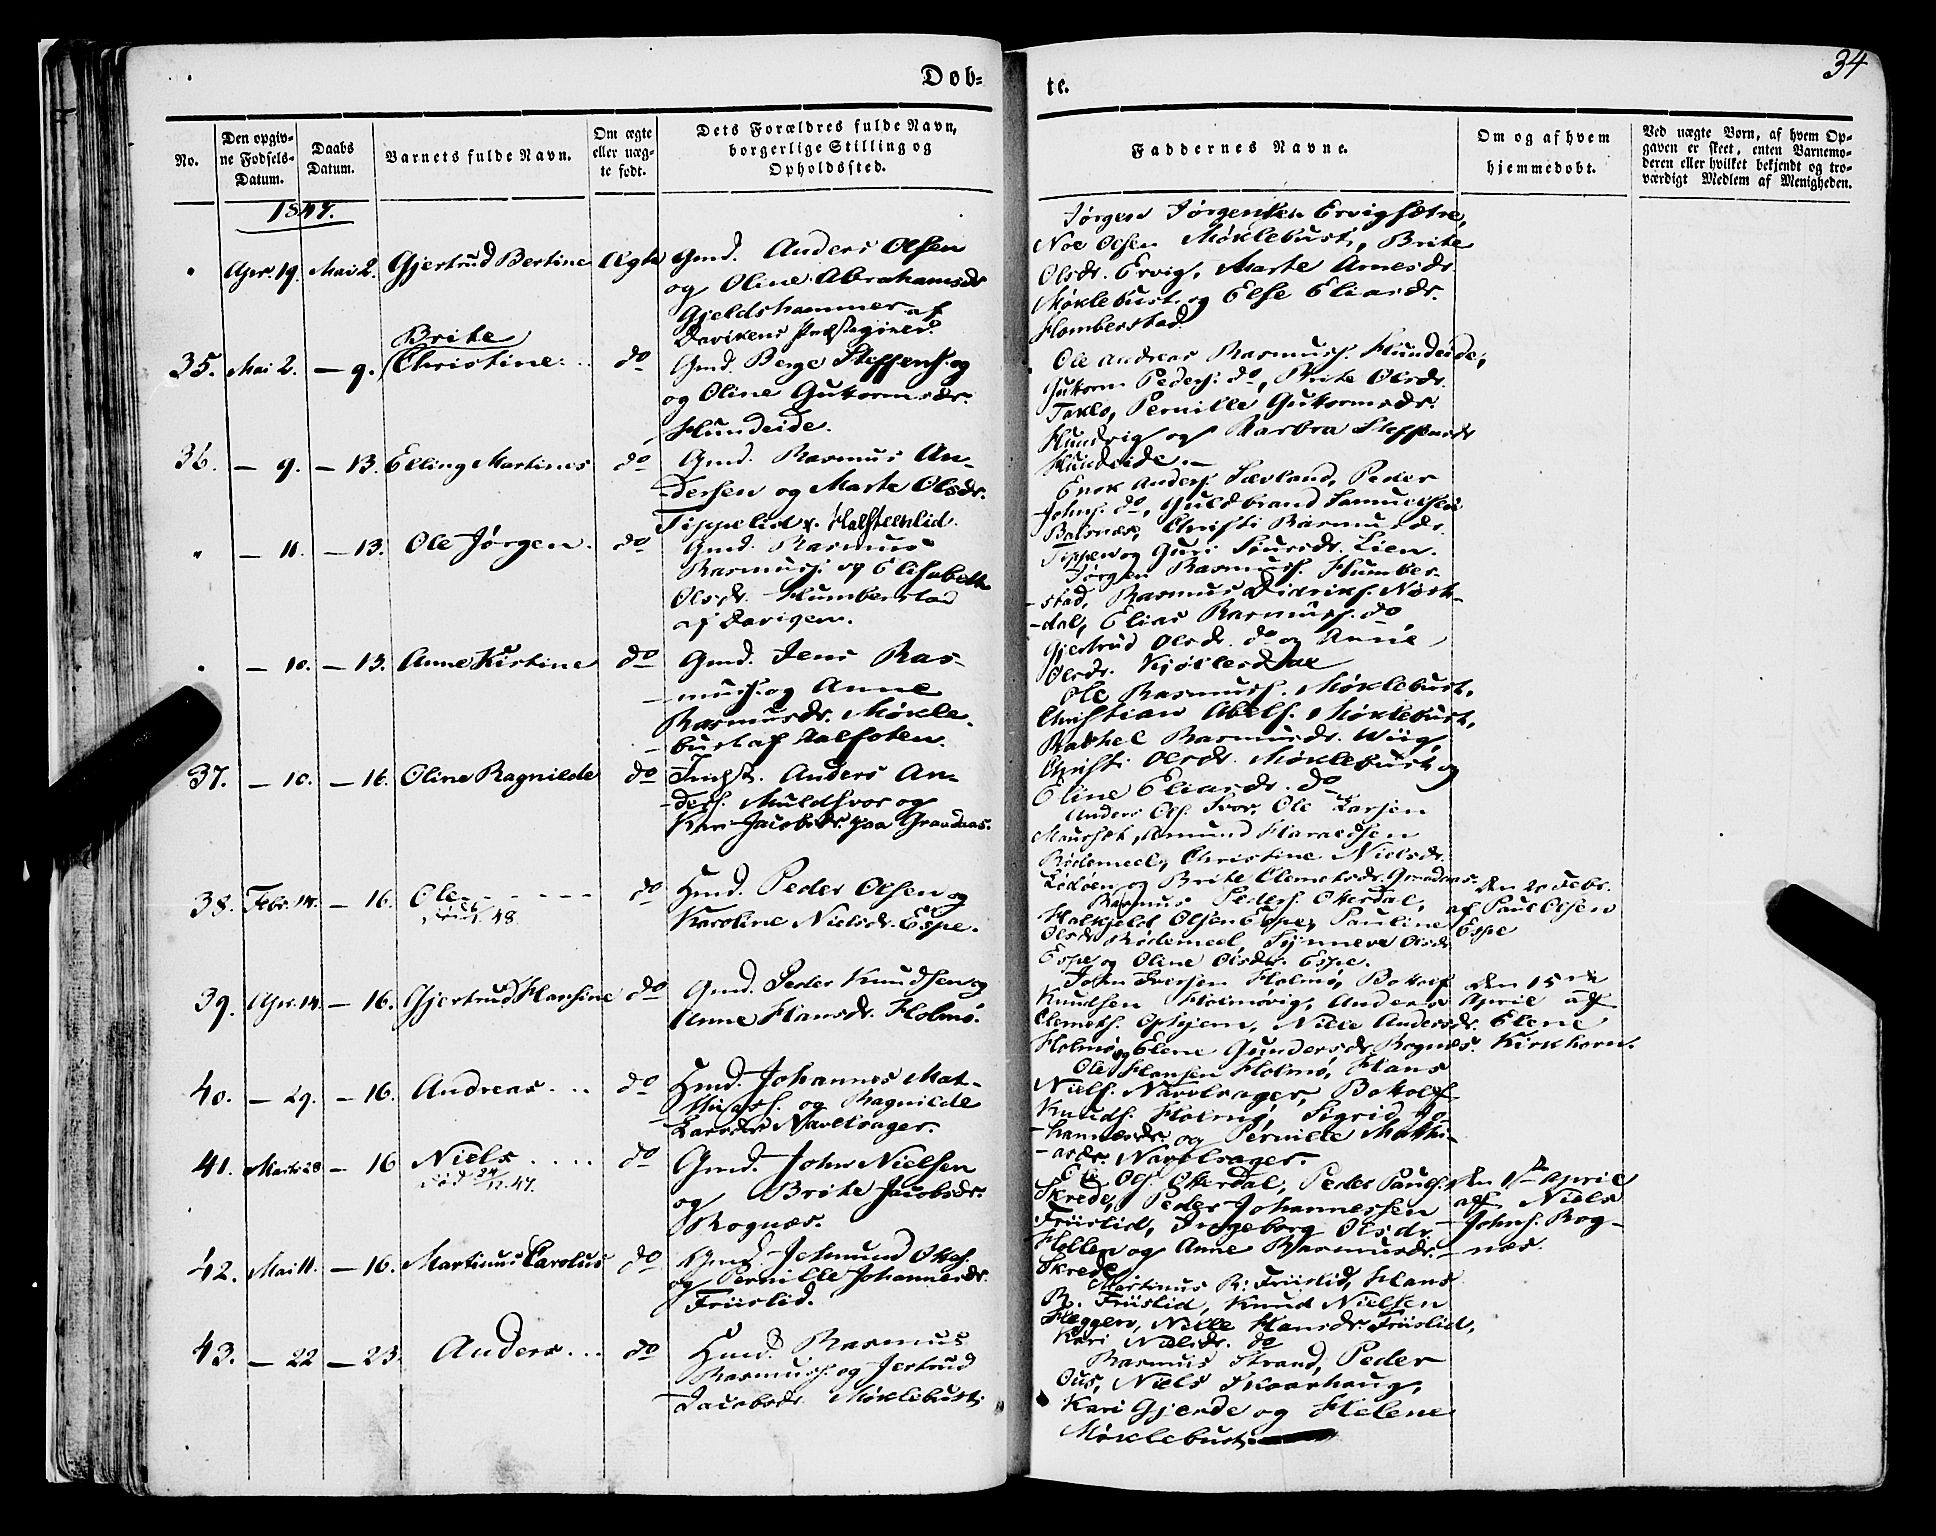 Døb-
te.
34
No.
Den opgiv-
ne Fødsels-
Datum.
Daabs
Datum.
Barnets fulde Navn.
Om ægte
eller uæg-
te født.
Dets Forældres fulde Navn,
borgerlige Stilling og
Opholdssted.
Faddernes Navne.
Om og af hvem
hjemmedøbt.
Ved uægte Børn, af hvem Op-
gaven er skeet, enten Barnemo-
deren eller hvilket bekjendt og tro-
værdigt Medlem af Menigheden.
1847.
" Apr. 19. Mai 2. Gjertrud Bertine Ægte
Gmd. Anders Olsen
og Oline Abrahamsdr
Gjeldshammer af
Davikens Præstegield.
Jørgen Jørgensen Ervigsætre,
Noe Olsen Møklebust, Brite
Olsdr. Ervig, Marte Arnesdr.
Møklebust og Else Eliasdr.
Homberstad
35. Mai 2. — 9. Brite
Christine do
Gmd. Berge Steffens. og
og Oline Gutormsdr.
Hundeide.
Ole Andreas Rasmuss. Hundeide,
Gutorm Peders. do, Brite Olsdr.
Taklo, Pernille Gutormsdr.
Hundvig og Barbra Steffensdr
Hundeide.
36. — 9. — 13. Elling Martines do
Gmd. Rasmus An-
dersen og Marte Olsdr.
Tippelid v. Halsteenlid.
Enok Anders. Sævland, Peder
Johns. do, Guldbrand Samuelsen
Batnæs, Christi Rasmusdr.
Tippen og Guri Siursdr. Lien.
" — 11. — 13. Ole Jørgen. do
Gmd. Rasmus
Rasmuss. og Elisabeth
Olsdr. Humberstad
af Davigen.
Jørgen Rasmuss. Humber-
stad, Rasmus Didriks. Nord-
dal, Elias Rasmuss. do
Gjertrud Olsdr. do og Anne
Olsdr. Kjøllesdal
" — 10. — 13. Anne Kistine do
Gmd. Jens Ras-
muss. og Anne
Rasmusdr. Møkle-
bust af Aalfoten.
Ole Rasmuss. Møklebust,
Christian Abels. Møklebust,
Rakhel Rasmusdr. Wiig,
Christi Olsdr. Møklebust og
Eline Eliasdr. do
37. — 10. — 16. Oline Ragnilde do
Indst. Anders An-
ders. Muldsvor og
Kari Jacobsdr. paa Graadaas.
Anders Ols. Svor, Ole Larsen
Maurset, Amund Haraldsen
Rødemeel, Christine Nielsdr.
Lødøen og Brite Clemetsdr. Graadaas.
38. Febr. 14. — 16. Ole
48.
do
Hmd. Peder Olsen og
Karoline Nielsdr. Espe.
Rasmus Peders. Otterdal,
Halkjeld Olsen Espe, Pauline
Olsdr Rødemeel, Synneve Olsdr
Espe og Oline Olsdr. Espe.
den 20 Febr.
af Paul Olsen
Espe
39. Apr. 14. — 16. Gjertrud Hansine do
Gmd. Peder Knudsen og
Anne Hansdr. Holmø.
John Iversen Holmø, Botolf
Knutsen Holmøvig, Anders
Clemets. Ophjem, Nille Andersdr.
Holmø og Elene Gundersdr. Rognæs.
den 15de
April af
Elene
Kirkhorn.
40. — 29. — 16. Andreas do
Hmd. Johannes Mat-
hias. og Ragnilde
Larsdr. Navelsager.
Ole Hansen Holmø, Hans
Niels. Navelsager, Botolf
Knuds. Holmø, Sigrid Jo-
hannesdr. og Pernille Mathi-
asdr. Navelsager.
41. Marts 28 — 16 Niels
død 24/12. 47.
do
Gmd. John Nielsen
og Brite Jacobsdr.
Rognæs.
Ole Ols. Otterdal, Peder Pauls.
Skrede, Peder Johannessen
Friislid, Ingeborg Olsdr.
Hollen og Anne Rasmusdr.
Skrede.
den 1ste April
af Niels
Johns. Rog-
næs.
42. Mai 11. — 16. Martinus Carolus do
Gmd. Jetmund Ottes.
og Pernille Johannesdr.
Friislid.
Martinus R. Friislid, Hans
R. Friislid, Knud Nielsen
Heggen, Nille Hansdr. Friislid,
Kari Nielsdr. do
43. — 22 — 23. Anders do
Hmd. Rasmus
Rasmuss. og Jertrud
Jacobsdr. Møklebust
Rasmus Strand, Peder
Ous, Niels Skaarhaug,
Kari Gjerde og Helene
Møklebust.